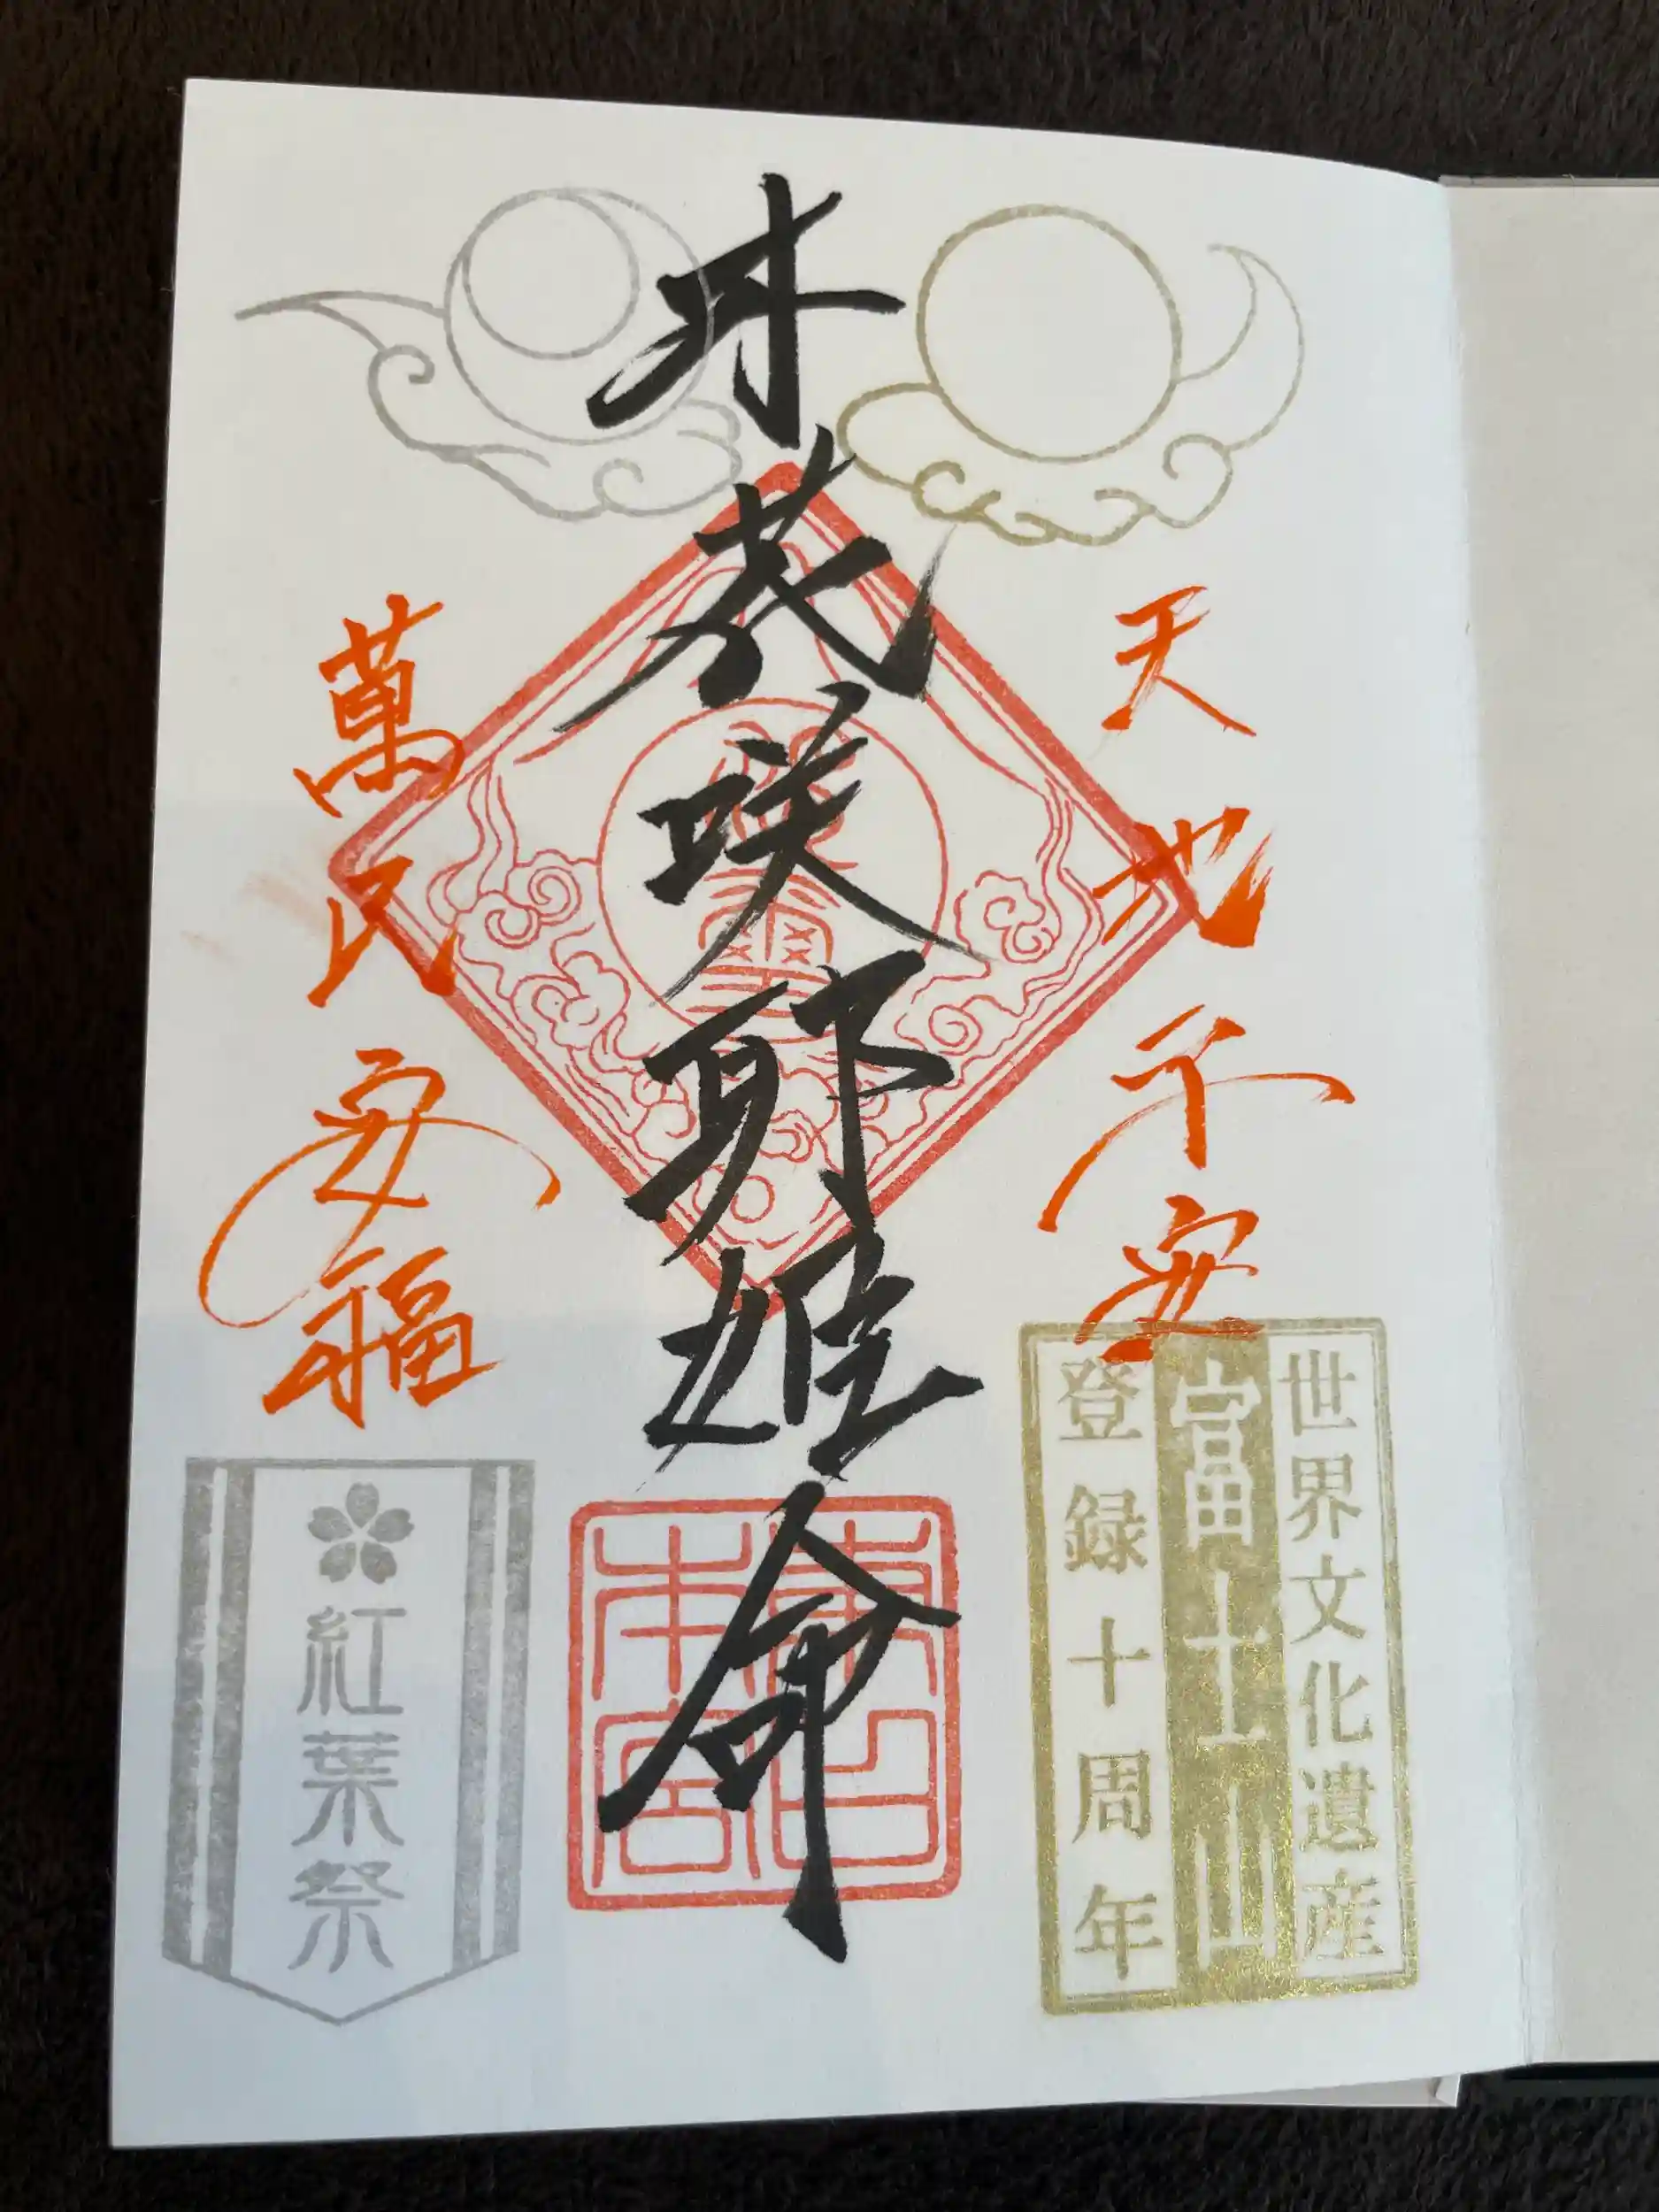 天地平安
世界文化遺産
富士山
登録十周年
木花咲耶姫命
東口
本宮
萬民安福
紅葉祭